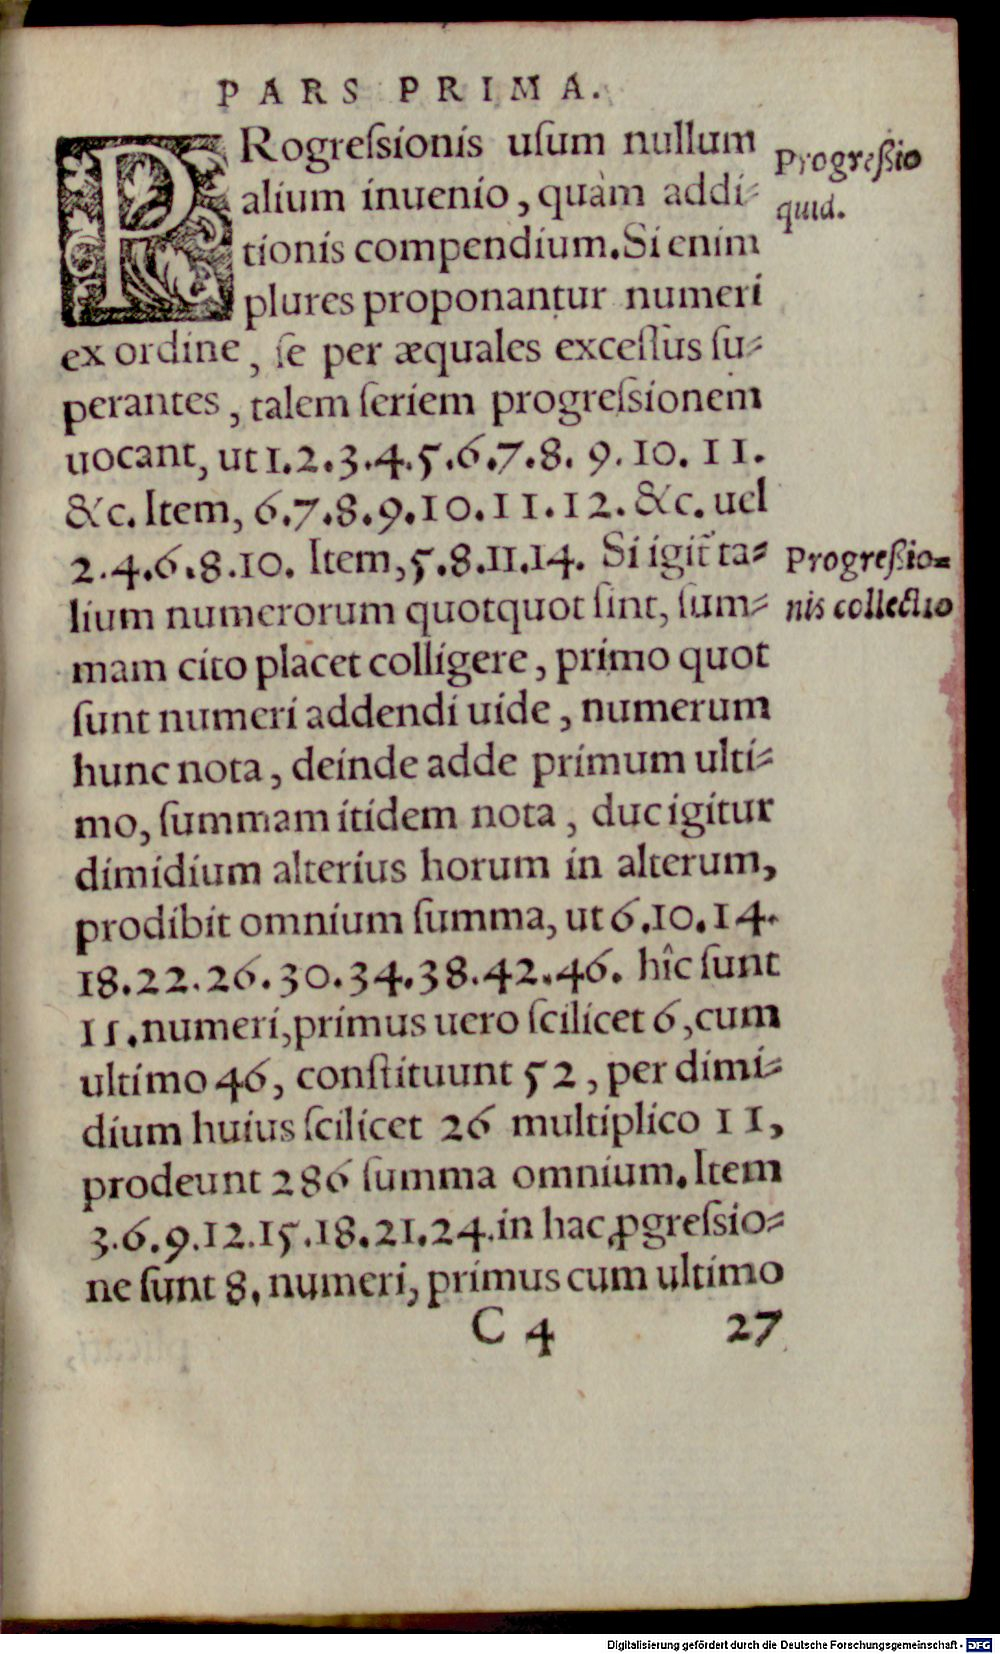 PARS PRIMA.
PRogreſsionis uſum nullum
alium inuenio, quàm addi⸗
tionis compendium. Si enim
plures proponantur numeri
ex ordine, ſe per æquales exceſſus ſu⸗
perantes, talem ſeriem progreſsionem
uocant, ut 1.2.3.4.5.6.7.8. 9. 10. 11.
&c. Item, 6.7.8.9.10.11.12. &c. uel
2.4.6.8.10. Item, 5.8.11.14. Si igit̃ ta⸗
lium numerorum quotquot ſint, ſum⸗
mam cito placet colligere, primo quot
ſunt numeri addendi uide, numerum
hunc nota, deinde adde primum ulti⸗
mo, ſummam itidem nota, duc igitur
dimidium alterius horum in alterum,
prodibit omnium ſumma, ut 6.10.14.
18.22.26.30.34.38.42.46. hîc ſunt
11. numeri, primus uero ſcilicet 6, cum
ultimo 46, conſtituunt 52, per dimi⸗
dium huius ſcilicet 26 multiplico 11,
prodeunt 286 ſumma omnium. Item
3.6.9.12.15.18.21.24. in hac ꝓgreſsio⸗
ne ſunt 8. numeri, primus cum ultimo
C 4 27
Progreßio
quid.
Progreßio⸗
nis collectio
Digitalisierung gefördert durch die Deutsche Forschungsgemeinschaft - DFG